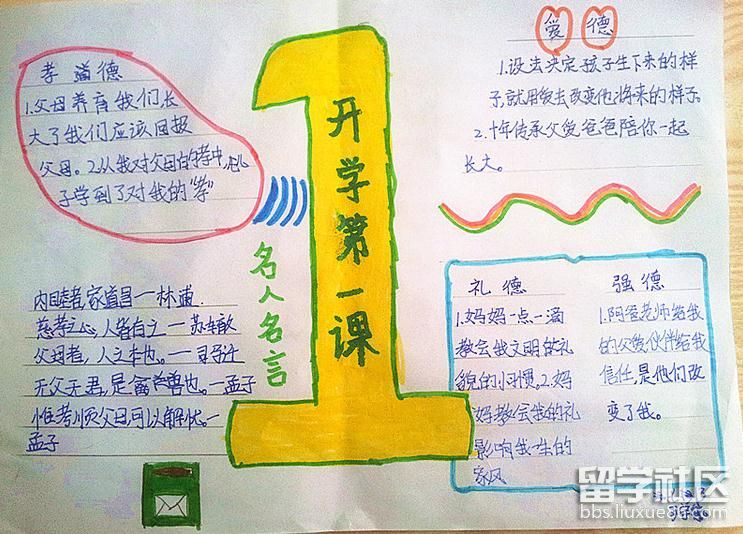 孝道德
1.父母养育我们长
大了我们应该回报
父母。2.从我对父母的孝中,
子学到了对我的“孝”
开学第一课
爱德
1.没法决定孩子生下来的样
子,就用爱去改变他将来的样子。
2.十年传承父爱,爸爸陪你一起
长大。
名人名言
内睦者,家道昌—林逋
慈孝之心,人皆有之—苏辙
父母者,人之本也。—司马迁
无父无君,是禽兽也。—孟子
惟孝顺父母,可以解忧。—
孟子
礼德
1.妈妈一点一滴
教会我文明的礼
貌的小习惯,2.妈
妈教会我的礼
影响我一生的
家风
强德
1.阿爸老师给我
的父爱伙伴给我
信任,是他们改
变了我。
留学社区
bbs.liuxue86.com